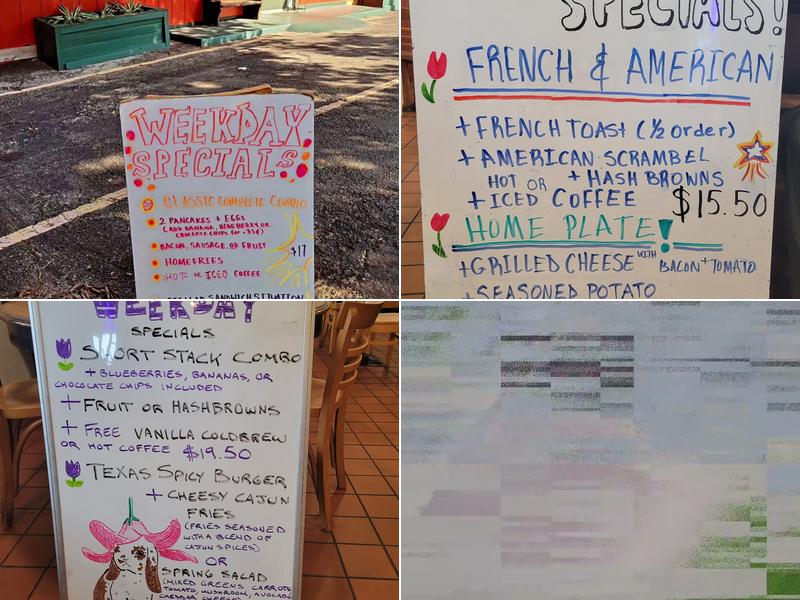 WEEKDAY
SPECIALS
CLASSIC COMPLETE COMBO
2 PANCAKES + EGGS
(ADD BANANA, BLUEBERRY OR
CHOCOLATE CHIPS for .75¢)
BACON, SAUSAGE, OR FRUIT
HOMEFRIES
HOT OR ICED COFFEE
$17
SANDWICH SITUATION
SPECIALS!
FRENCH & AMERICAN
+ FRENCH TOAST (1/2 order)
+ AMERICAN SCRAMBEL
HOT OR + HASH BROWNS
+ ICED COFFEE $15.50
HOME PLATE!
+ GRILLED CHEESE WITH BACON + TOMATO
+ SEASONED POTATO
WEEKDAY
SPECIALS
SHORT STACK COMBO
+ BLUEBERRIES, BANANAS, OR
CHOCOLATE CHIPS INCLUDED
+ FRUIT OR HASHBROWNS
+ FREE VANILLA COLDBREW
OR HOT COFFEE $19.50
TEXAS SPICY BURGER
+ CHEESY CAJUN
FRIES
(FRIES SEASONED
WITH A BLEND OF
CAJUN SPICES)
OR
SPRING SALAD
(MIXED GREENS, CARROTS
TOMATO, MUSHROOM, AVOCADO
CHEDDAR CHEESE)